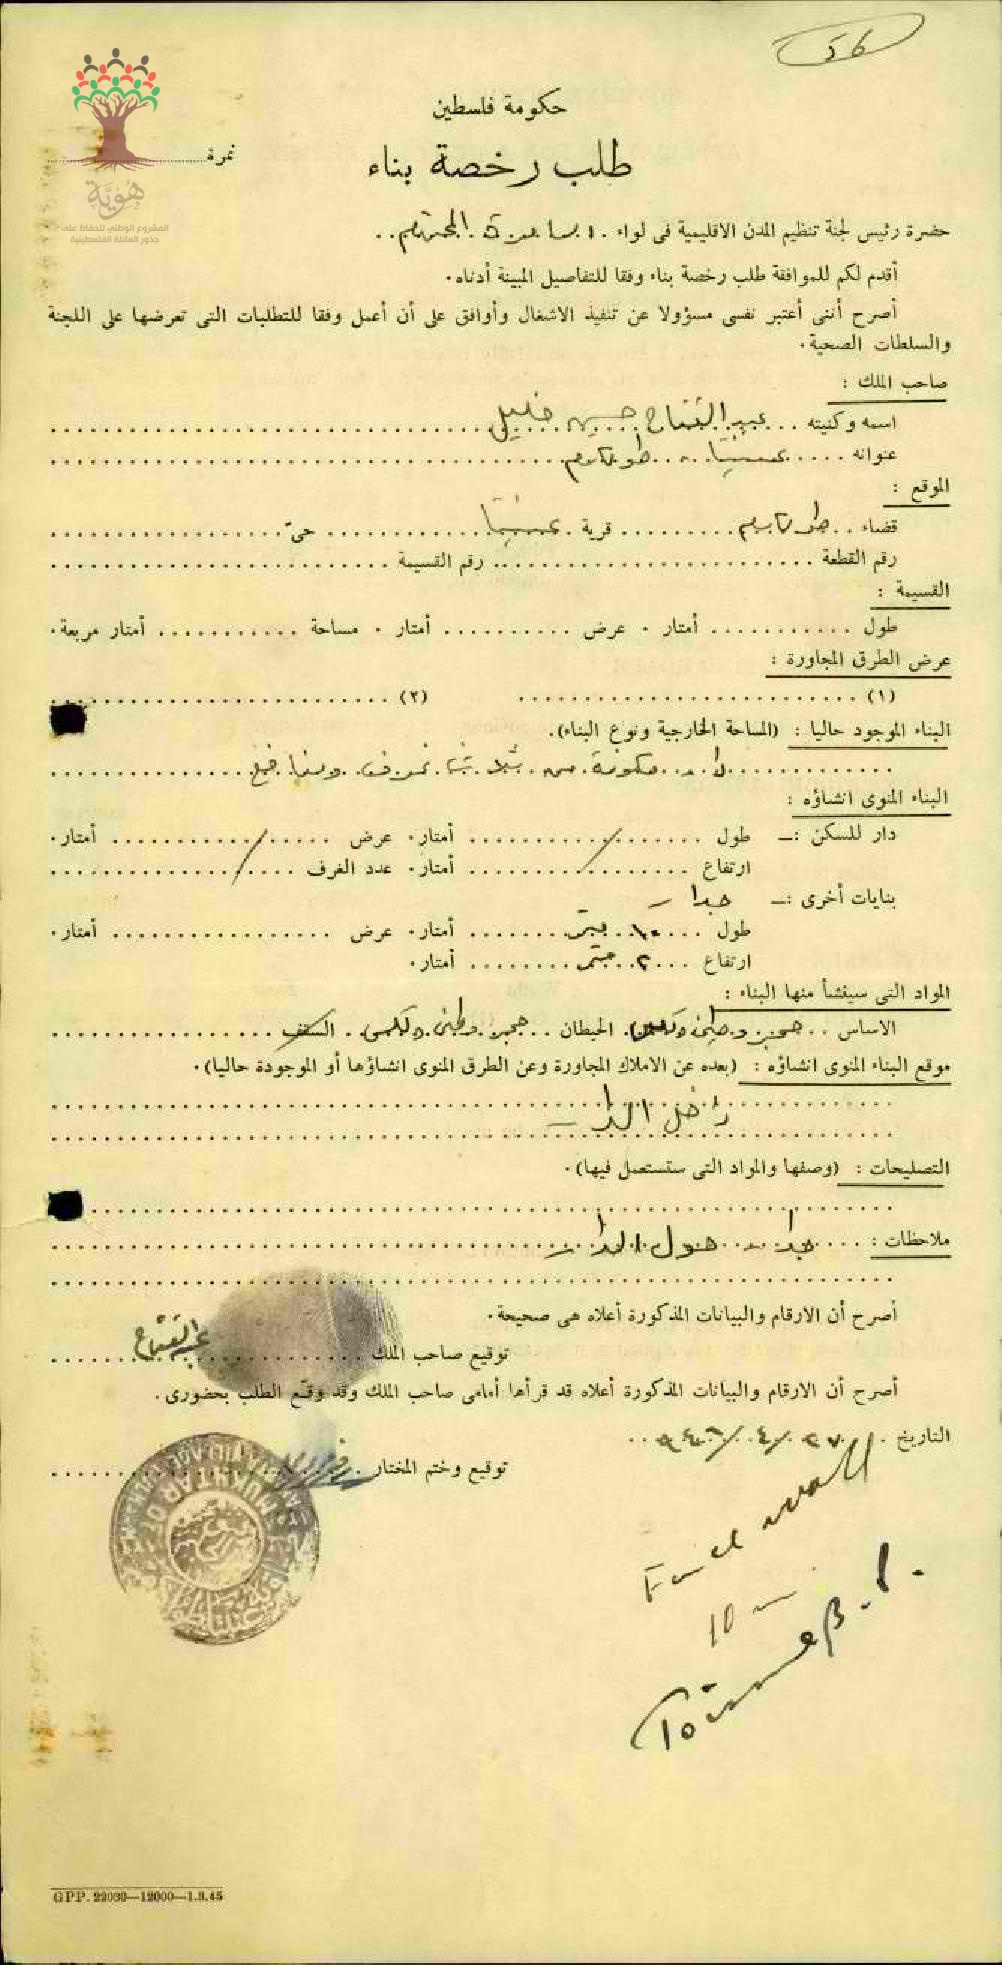 ٥٦
هويَّة
المشروع الوطني للحفاظ على
جذور العائلة الفلسطينية
حكومة فلسطين
طلب رخصة بناء
نمرة
حضرة رئيس لجنة تنظيم المدن الاقليمية فى لواء السامرة المحترم
أقدم لكم للموافقة طلب رخصة بناء وفقا للتفاصيل المبينة أدناه.
أصرح أننى أعتبر نفسى مسؤولا عن تنفيذ الاشغال وأوافق على أن أعمل وفقا للتطلبات التى تعرضها على اللجنة
والسلطات الصحية.
صاحب الملك :
اسمه وكنيته عبد الفتاح حسين خليل
عنوانه عنبتا - طولكرم
الموقع :
قضاء طولكرم قرية عنبتا حىّ
رقم القطعة رقم القسيمة
القسيمة :
طول أمتار . عرض أمتار . مساحة أمتار مربعة.
عرض الطرق المجاورة :
(١) (٢)
البناء الموجود حاليا : (المساحة الخارجية ونوع البناء).
دار مكونة من ثلاث غرف
البناء المنوى انشاؤه :
دار للسكن :— طول / أمتار. عرض / أمتار.
ارتفاع / أمتار. عدد الغرف /
بنايات أخرى :— جدار
طول ١٠ متر أمتار. عرض أمتار.
ارتفاع ٢ متر أمتار.
المواد التى سينشأ منها البناء :
الاساس حجر وطين وكلس الحيطان حجر وطين وكلس السقف
موقع البناء المنوى انشاؤه : (بعده عن الاملاك المجاورة وعن الطرق المنوى انشاؤها أو الموجودة حاليا).
داخل الدار
التصليحات : (وصفها والمواد التى ستستعمل فيها).
ملاحظات : جدار حول الدار
أصرح أن الارقام والبيانات المذكورة أعلاه هى صحيحة.
توقيع صاحب الملك عبد الفتاح
أصرح أن الارقام والبيانات المذكورة أعلاه قد قرأها أمامى صاحب الملك وقد وقّع الطلب بحضورى.
التاريخ ٢٧/٤/٩٤٦
توقيع وختم المختار
MUKHTAR OF
wall
10 m
GPP. 22030—12000—1.3.45